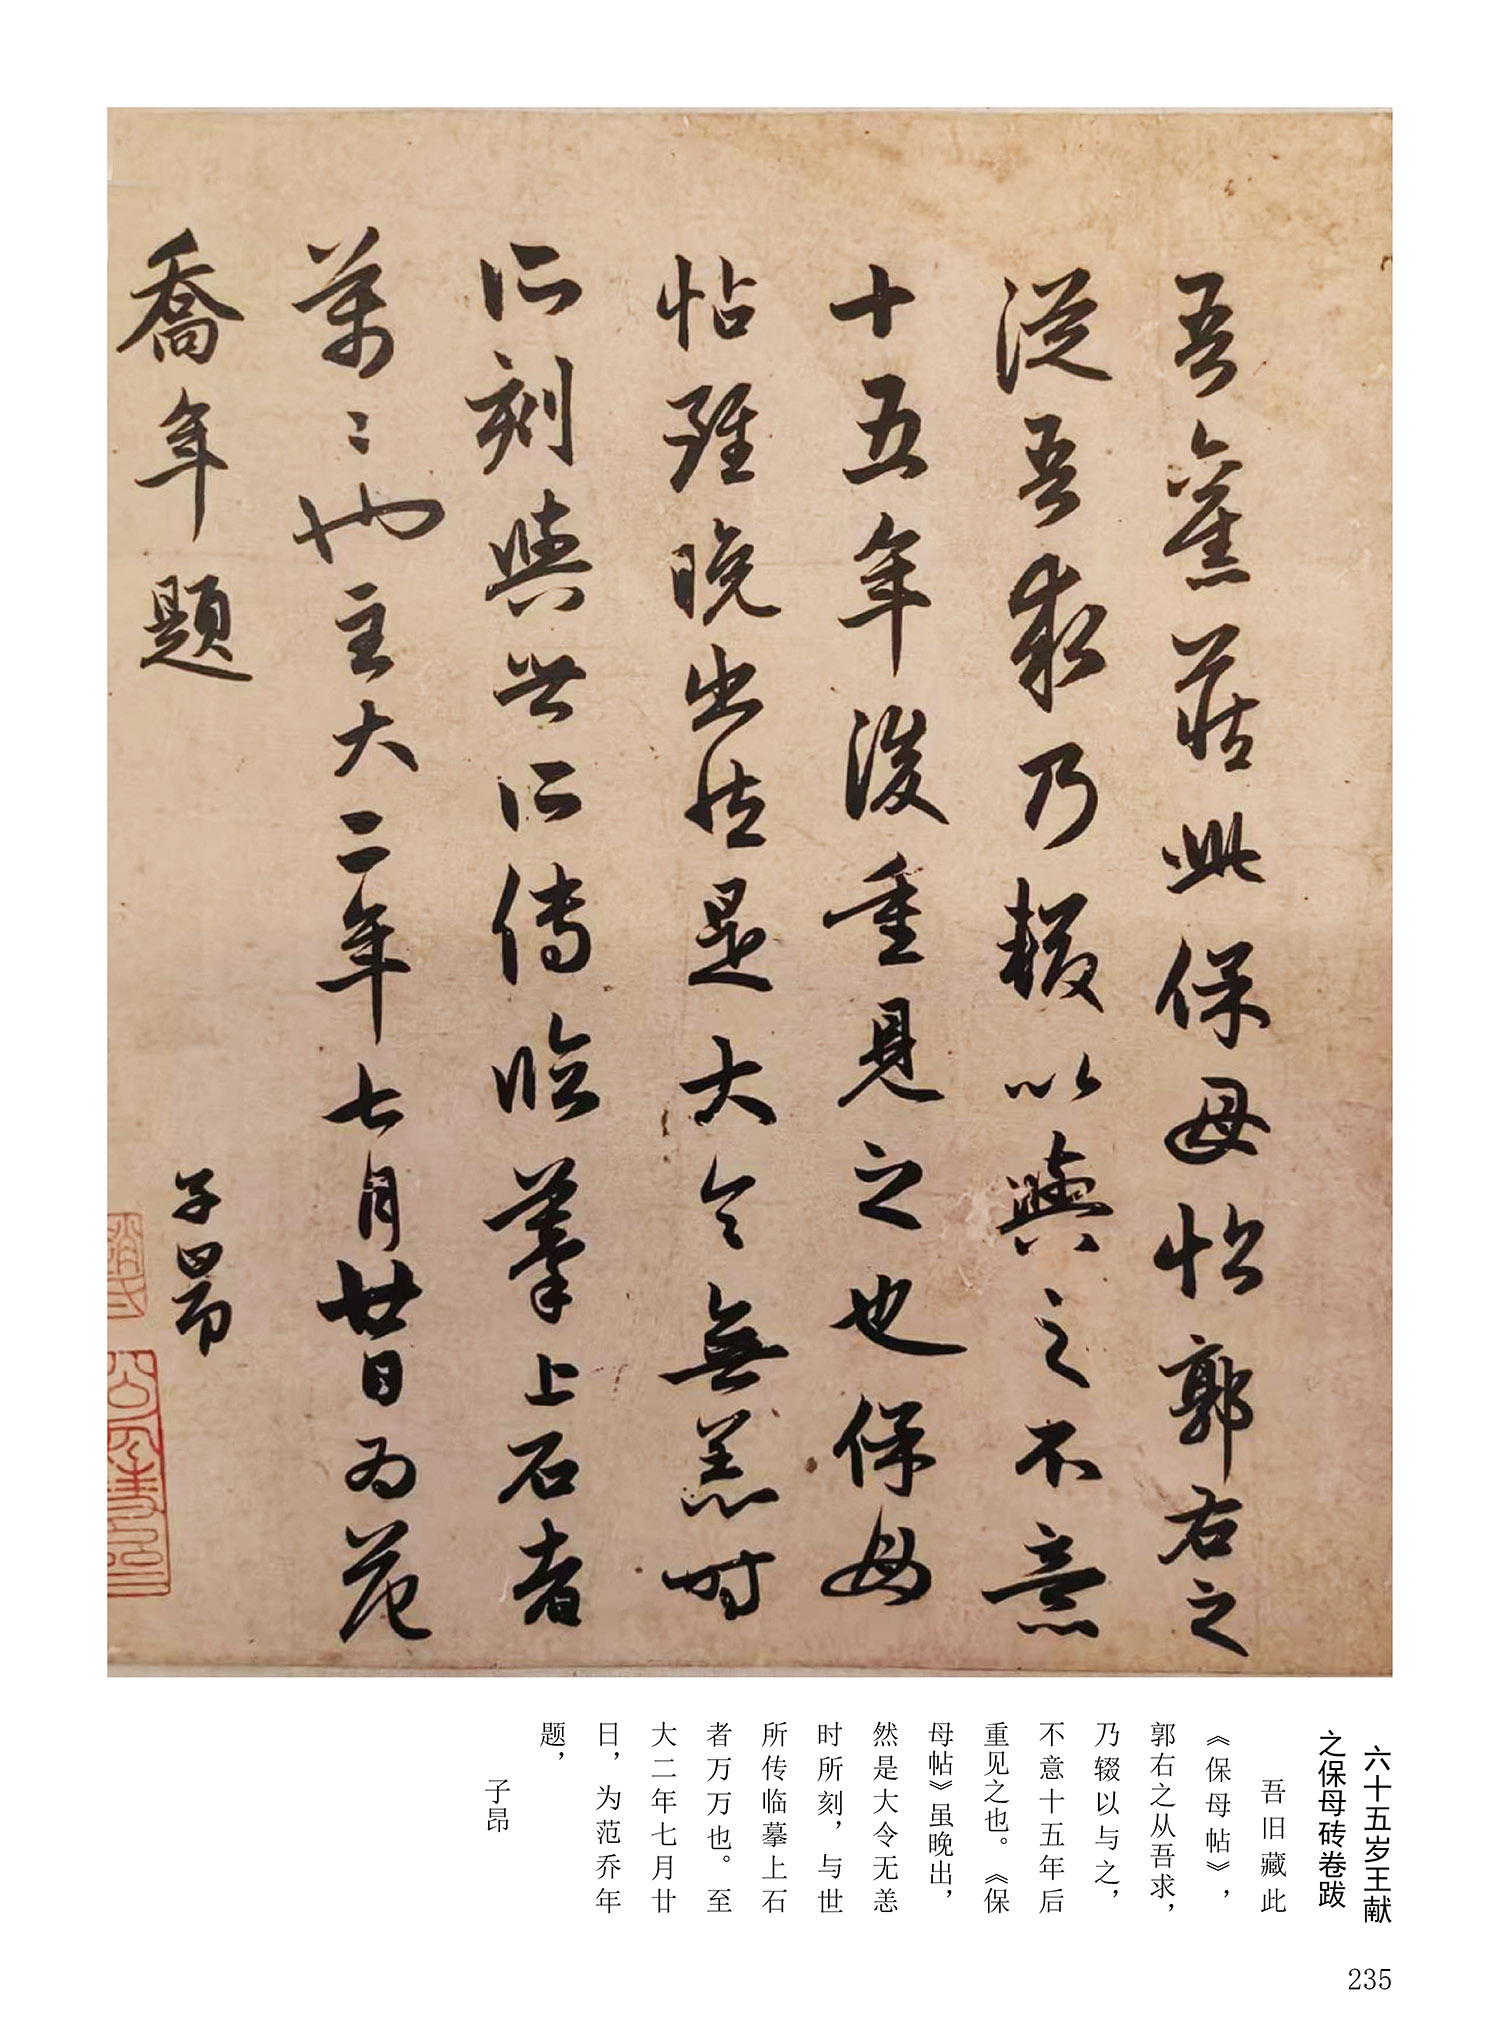 吾舊藏此保母帖郭右之
從吾求乃輟以與之不意
十五年後重見之也保母
帖雖晚出然是大令無恙時
所刻與世所傳臨摹上石者
萬〻也至大二年七月廿日為范
喬年題
子昂
趙氏
六十五岁王献
之保母砖卷跋
吾旧藏此
《保母帖》，
郭右之从吾求，
乃辍以与之，
不意十五年后
重见之也。《保
母帖》虽晚出，
然是大令无恙
时所刻，与世
所传临摹上石
者万万也。至
大二年七月廿
日，为范乔年
题，
子昂
235